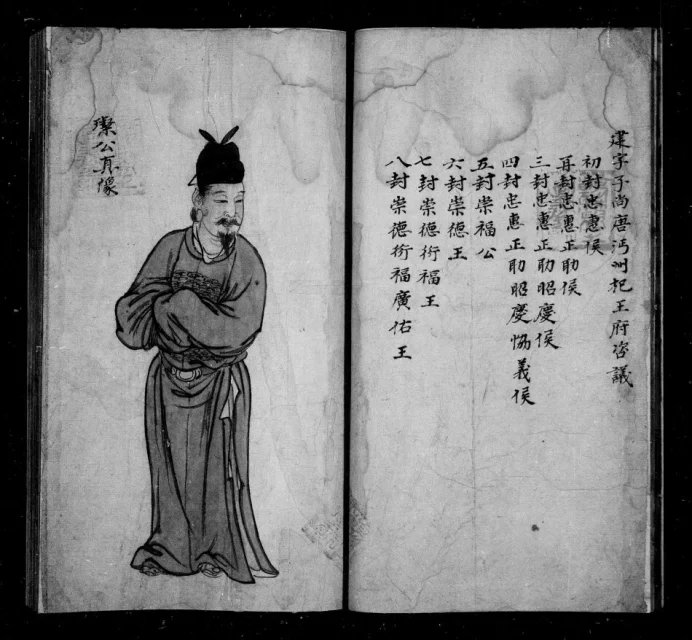 建字子尚唐沔州杞王府咨議
初封忠惠侯
再封忠惠正助侯
三封忠惠正助昭慶侯
四封忠惠正助昭慶協義侯
五封崇福公
六封崇德王
七封崇德衍福王
八封崇德衍福廣佑王
公真像